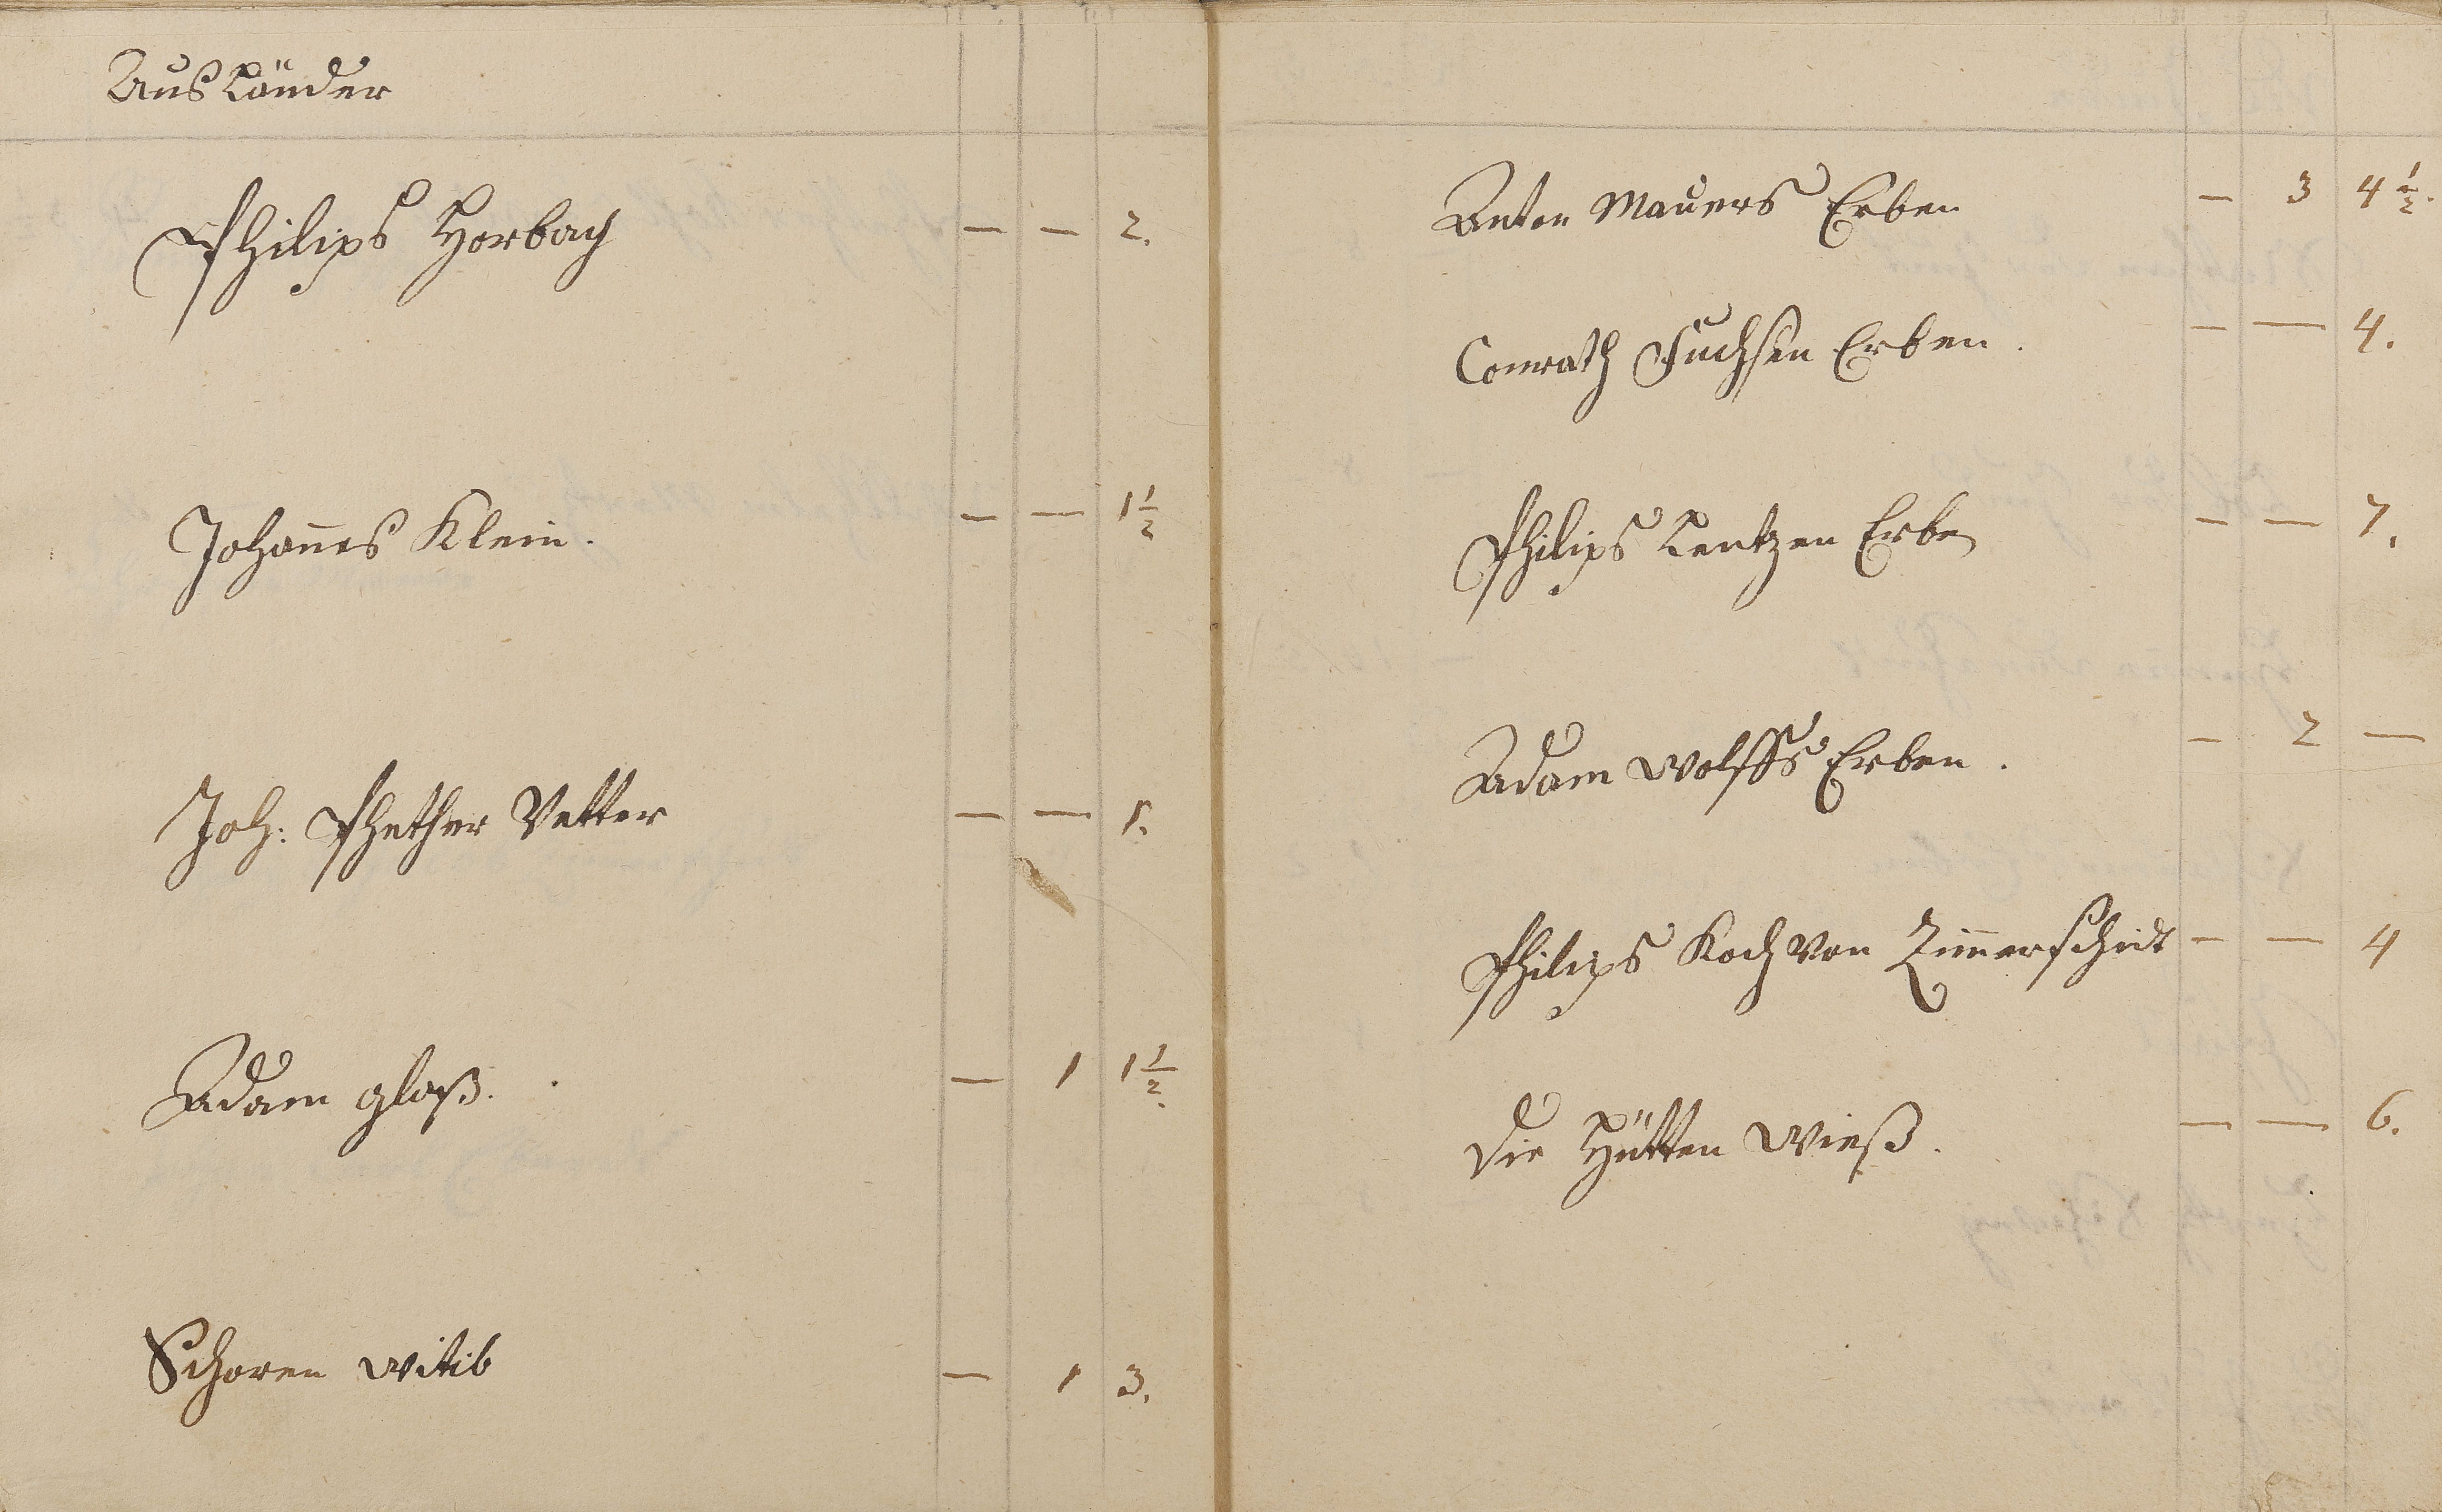 Ausländer
Philips Horbach — — 2.
Johannes Klein. — — 1 1/2
Joh: Phether Vetter — — 1.
Adam gloß. — 1 1 1/2.
Schoren witib — 1 3.
Anton Mauers Erben — 3 4 1/2.
Conrath Fuchsen Erben. — — 4.
Philips Lentzen Erben — — 7.
Adam Wolffs Erben. — 2 —
Philips Koch von Zimerscheidt — — 4
die Hütten wieß. — — 6.